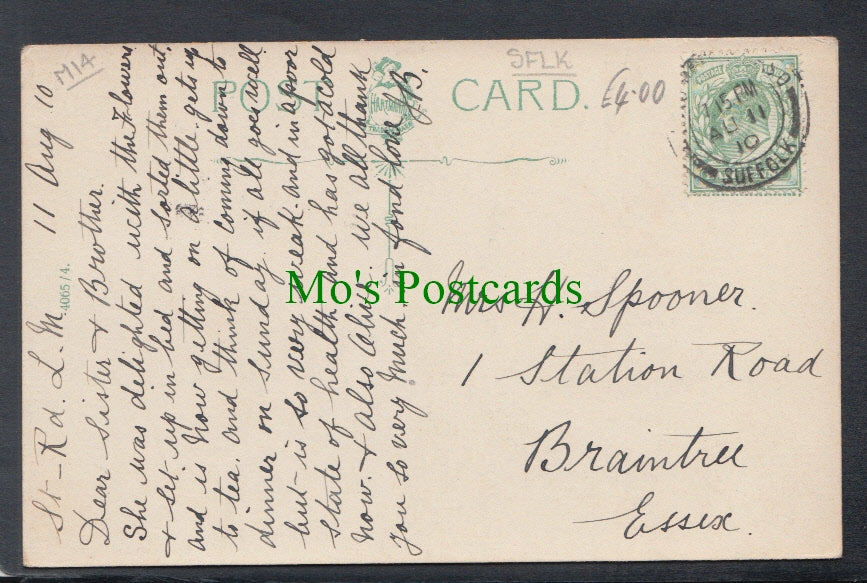 M14
POST CARD.
SFLK
£4.00
7.15 PM
AU 11
10
SUFFOLK
St-Rd. L. M. 11 Aug 10
Dear Sister & Brother.
She was delighted with the Flowers
& sit up in bed and sorted them out.
and is now getting on a little. gets up
to tea. and think of coming down to
dinner on Sunday. if all goes well
but is so very weak. and in a poor
state of health. and has got a cold
now. & also Olive. we all thank
you so very much in fond love JB.
40651/4.
Mo's Postcards
Mrs H. Spooner.
1 Station Road
Braintree
Essex.